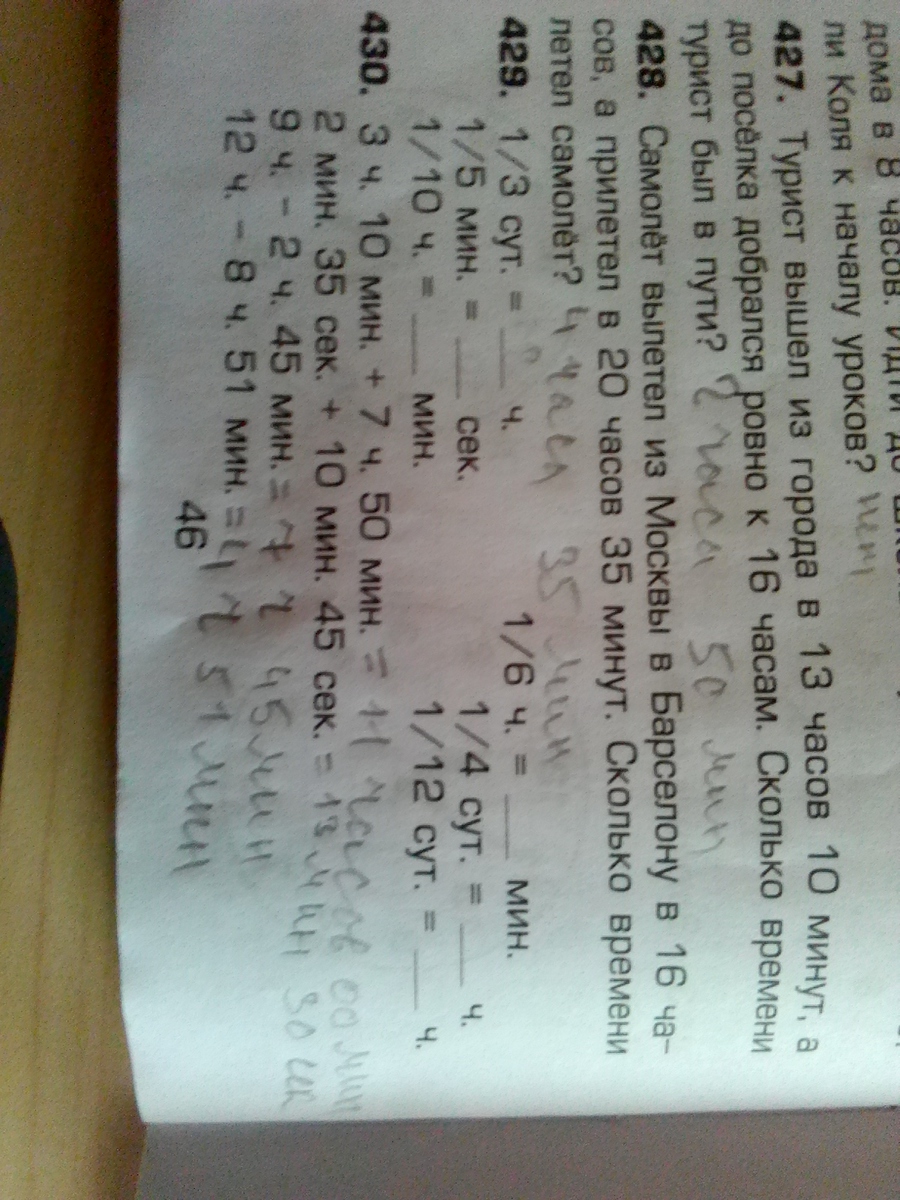 дома в 8 часов. Идти до
ли Коля к началу уроков? нет
427. Турист вышел из города в 13 часов 10 минут, а
до посёлка добрался ровно к 16 часам. Сколько времени
турист был в пути? 2 часа 50 мин
428. Самолёт вылетел из Москвы в Барселону в 16 ча-
сов, а прилетел в 20 часов 35 минут. Сколько времени
летел самолёт? 4 часа 35 мин
429. 1/3 сут. = ___ ч. 1/6 ч. = ___ мин.
1/5 мин. = ___ сек. 1/4 сут. = ___ ч.
1/10 ч. = ___ мин. 1/12 сут. = ___ ч.
430. 3 ч. 10 мин. + 7 ч. 50 мин. = 11 часов 00 мин
2 мин. 35 сек. + 10 мин. 45 сек. = 13 мин 30 сек
9 ч. - 2 ч. 45 мин. = 7 ч 45 мин
12 ч. - 8 ч. 51 мин. = 4 ч 51 мин
46